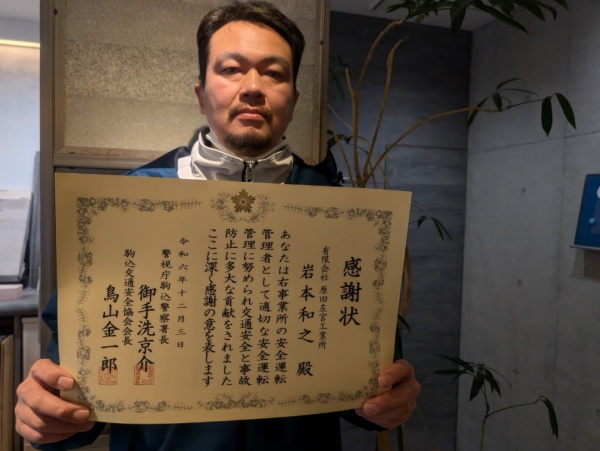 感謝状
有限会社 原田左官工業所
岩本和之 殿
あなたは右事業所の安全運転
管理者として適切な安全運転
管理に努められ交通安全と事故
防止に多大な貢献をされました
ここに深く感謝の意を表します
令和六年十二月三日
警視庁駒込警察署長
御手洗京介
駒込交通安全協会会長
鳥山金一郎